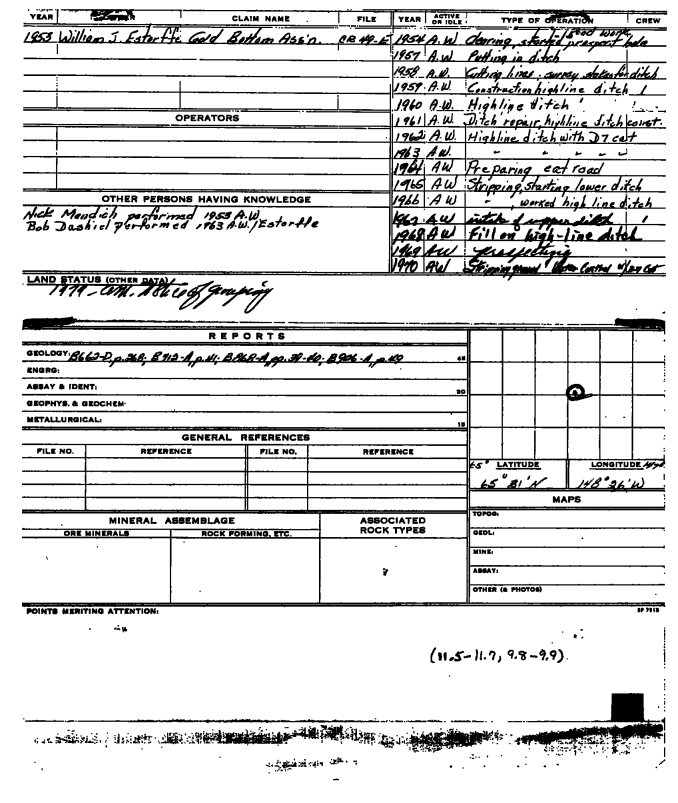 YEAR CLAIM NAME FILE YEAR ACTIVE OR IDLE TYPE OF OPERATION CREW
1953 William J. Estorffe Gold Bottom Ass'n. 1954 A.W Clearing, started prospect hole
good work
1957 A.W Putting in ditch
1958 A.W. Cutting lines, survey stakes for ditch
1959 A.W. Construction highline ditch 1
1960 A.W. Highline ditch 1
OPERATORS
1961 A.W. Ditch repair, highline ditch const.
1962 A.W. Highline ditch with D7 cat
1963 A.W. " " " " "
1964 AW Preparing cat road
1965 AW Stripping, starting lower ditch
1966 AW " , worked high line ditch
OTHER PERSONS HAVING KNOWLEDGE
Nick Mandich performed 1953 A.W.
Bob Dashiel performed 1963 A.W./Estorffe
1967 AW intake of upper ditch 1
1968 AW Fill on high-line ditch
1969 AW prospecting
1970 AW Stripping ground
LAND STATUS (OTHER DATA)
1979 - Notice of grouping
REPORTS
GEOLOGY: B662-D, p.268; B912-A, p.41; B868-A, pp. 39-40; B906-A, p.40 45
ENGRG:
ASSAY & IDENT: 30
GEOPHYS. & GEOCHEM:
METALLURGICAL: 15
GENERAL REFERENCES
FILE NO. REFERENCE FILE NO. REFERENCE
65° LATITUDE LONGITUDE
65° 21' N 148° 26' W
MAPS
TOPOG:
GEOL:
MINE:
ASSAY:
OTHER (& PHOTOS)
MINERAL ASSEMBLAGE ASSOCIATED ROCK TYPES
ORE MINERALS ROCK FORMING, ETC.
POINTS MERITING ATTENTION:
(11.5-11.7, 9.8-9.9)